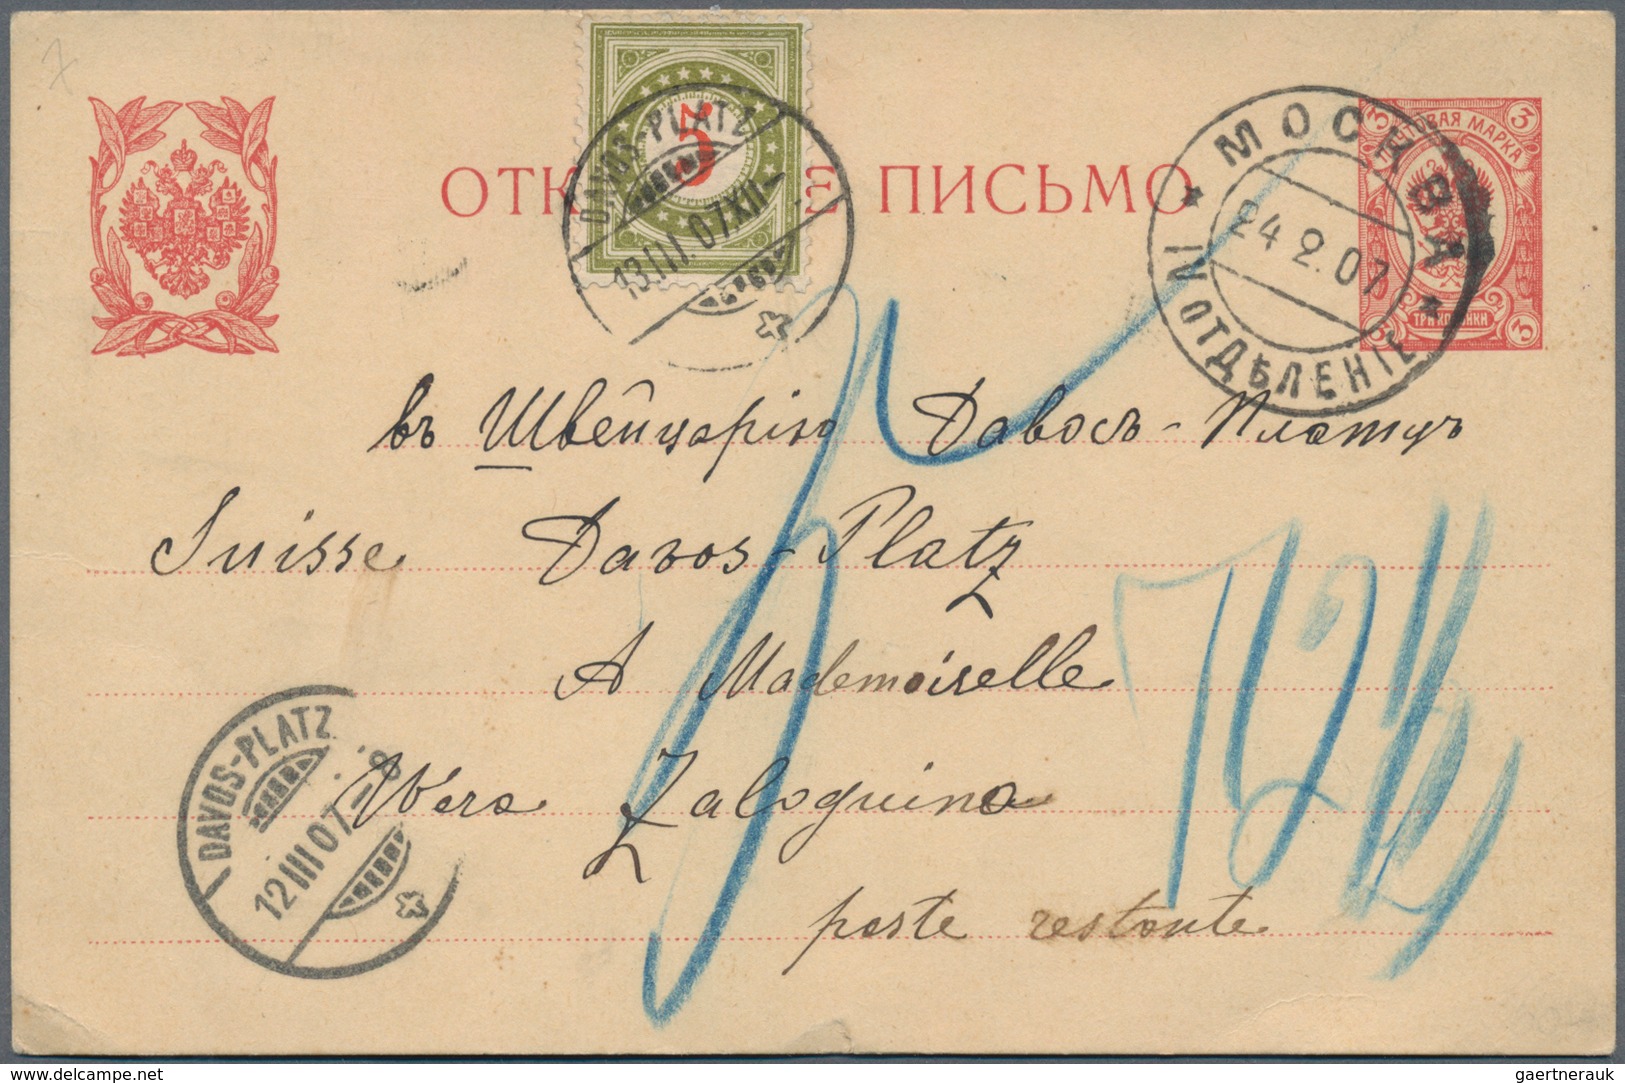 ОТК Е ПИСЬМО
5
DAVOS-PLATZ
13.III.07.XII-
МОСКВА
24 2.07
IV ОТДѢЛЕНІЕ
ПОЧТОВАЯ МАРКА
3 3
ТРИ КОПѢЙКИ
3 3
въ Швейцарію Давосъ-Платцъ
Suisse Davos-Platz
A Mademoiselle
Wera Zaloguina
poste restante
DAVOS-PLATZ
12 III 07-8
www.delcampe.net
gaertnerauk